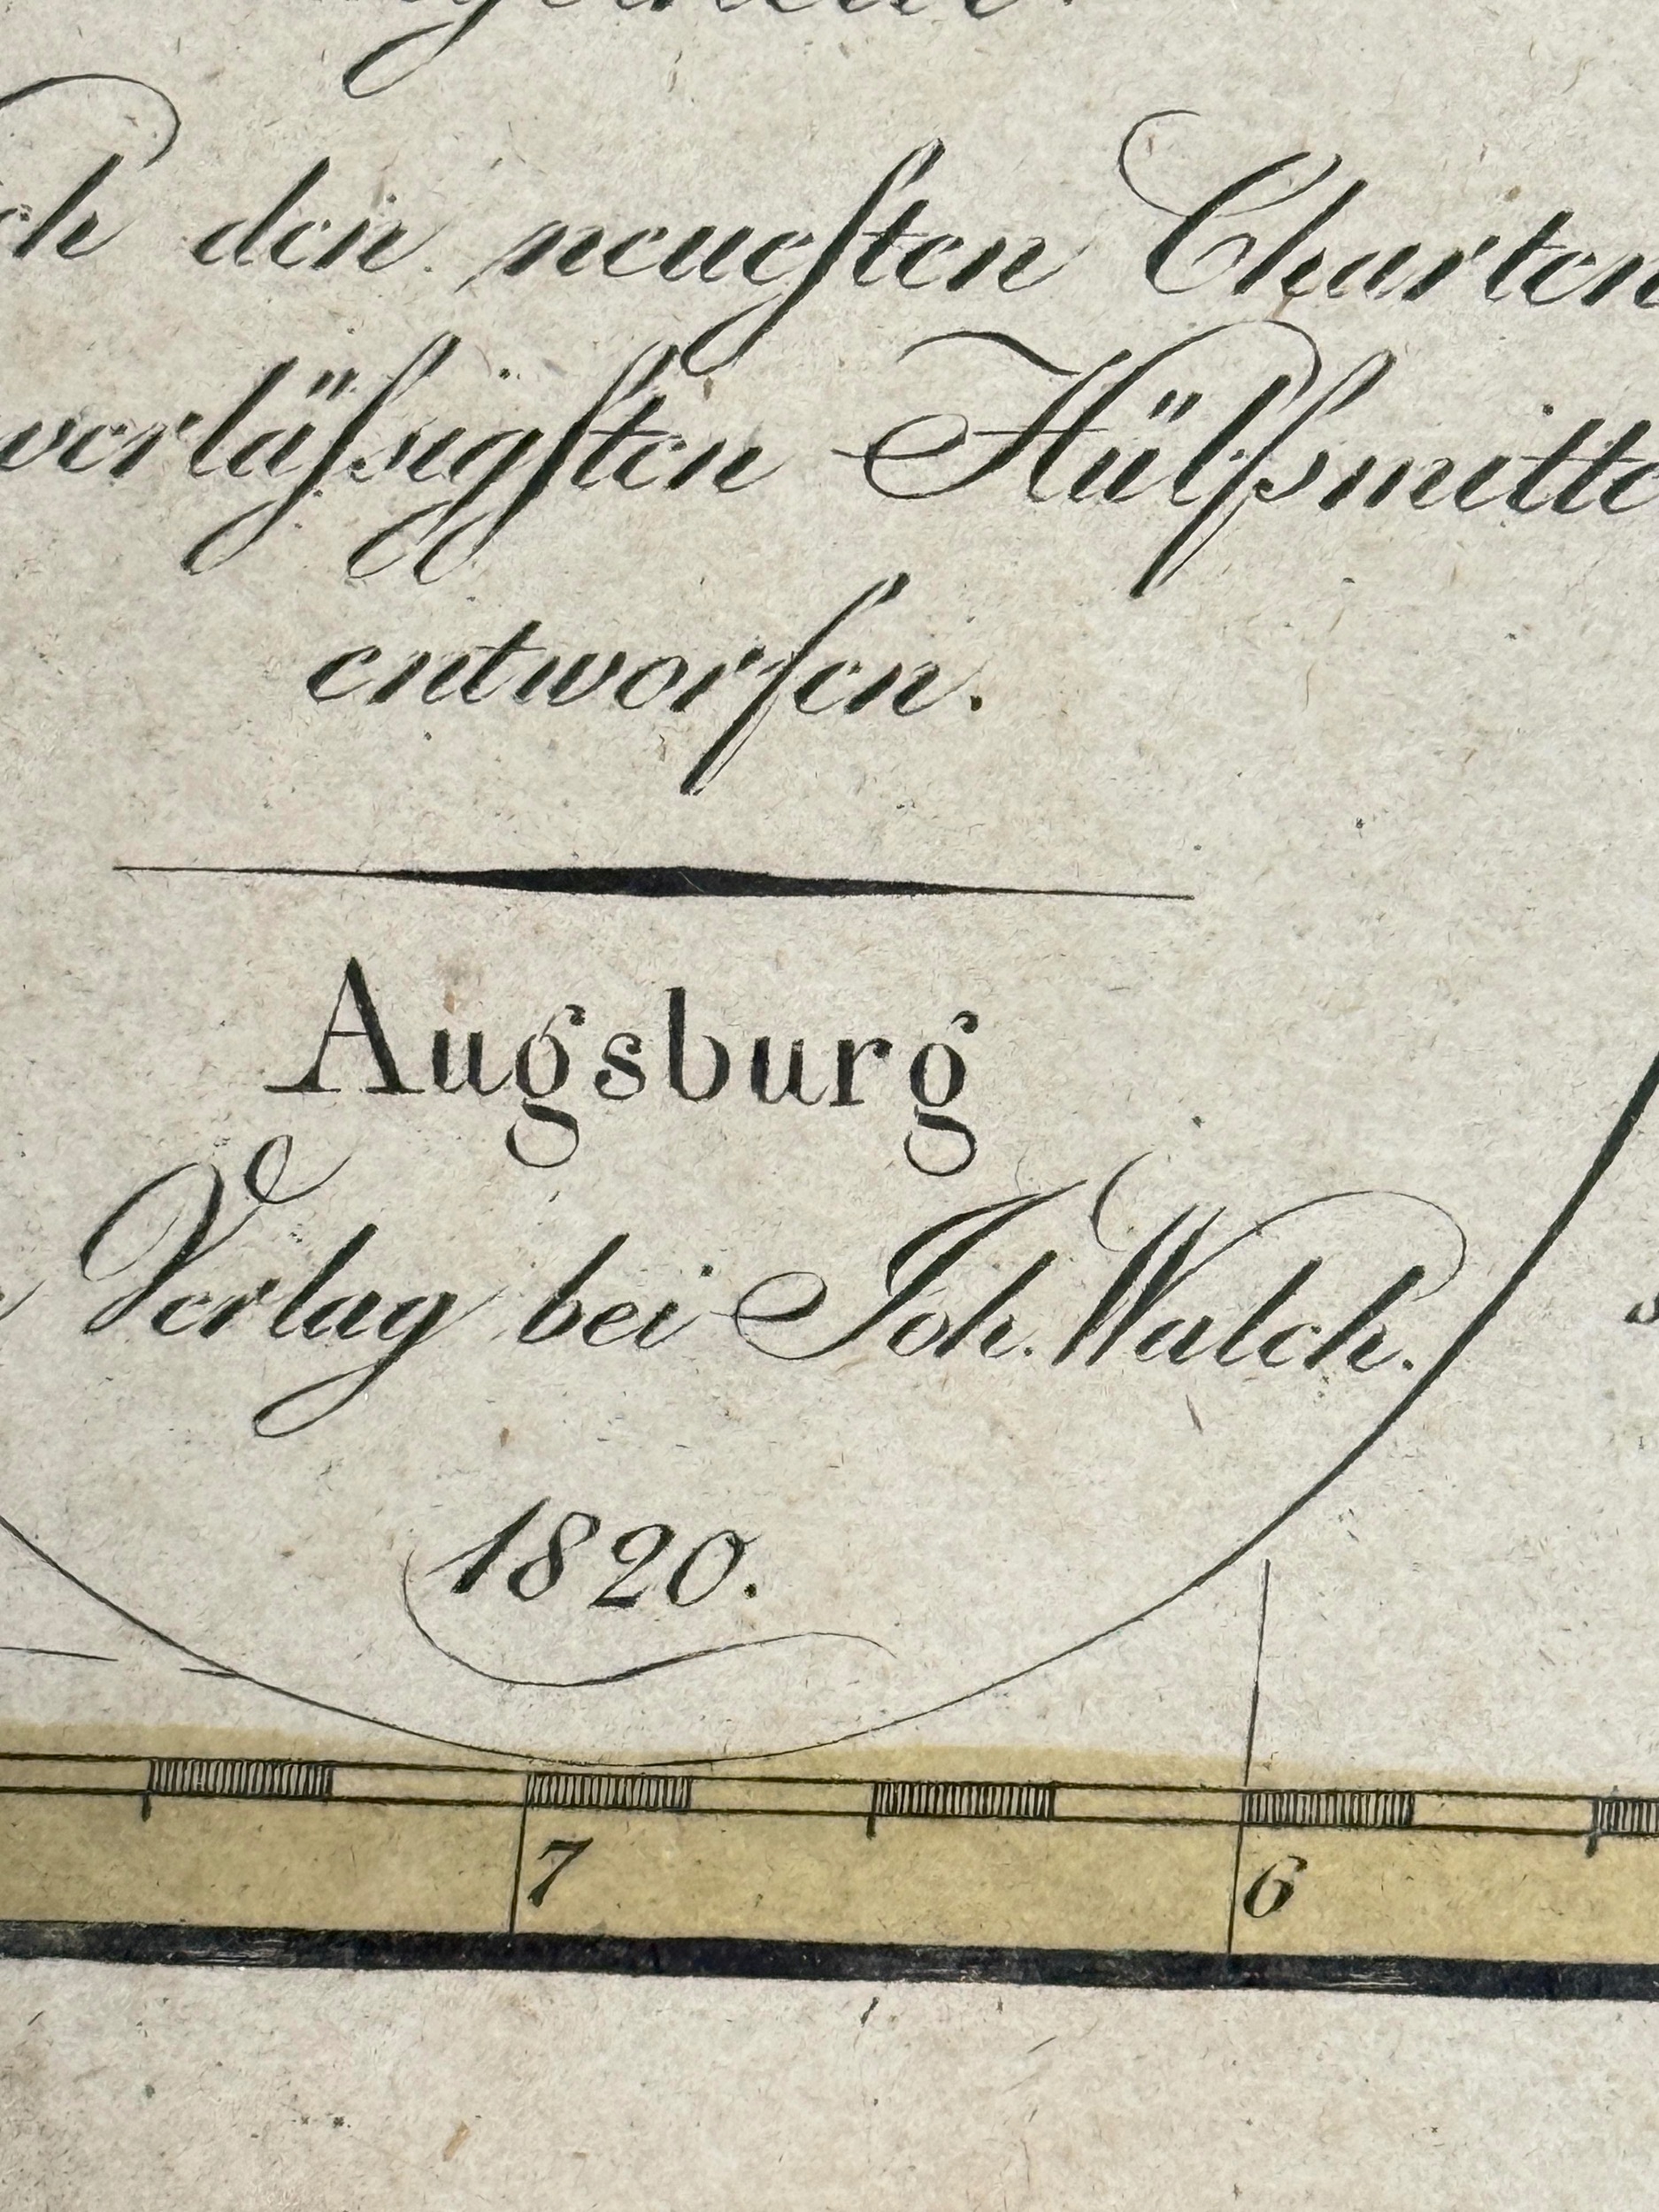 den neuesten Charten
verläſsigſten Hülfsmitte
entworfen.
Augsburg
Verlag bei Joh. Walch.
1820.
7 6